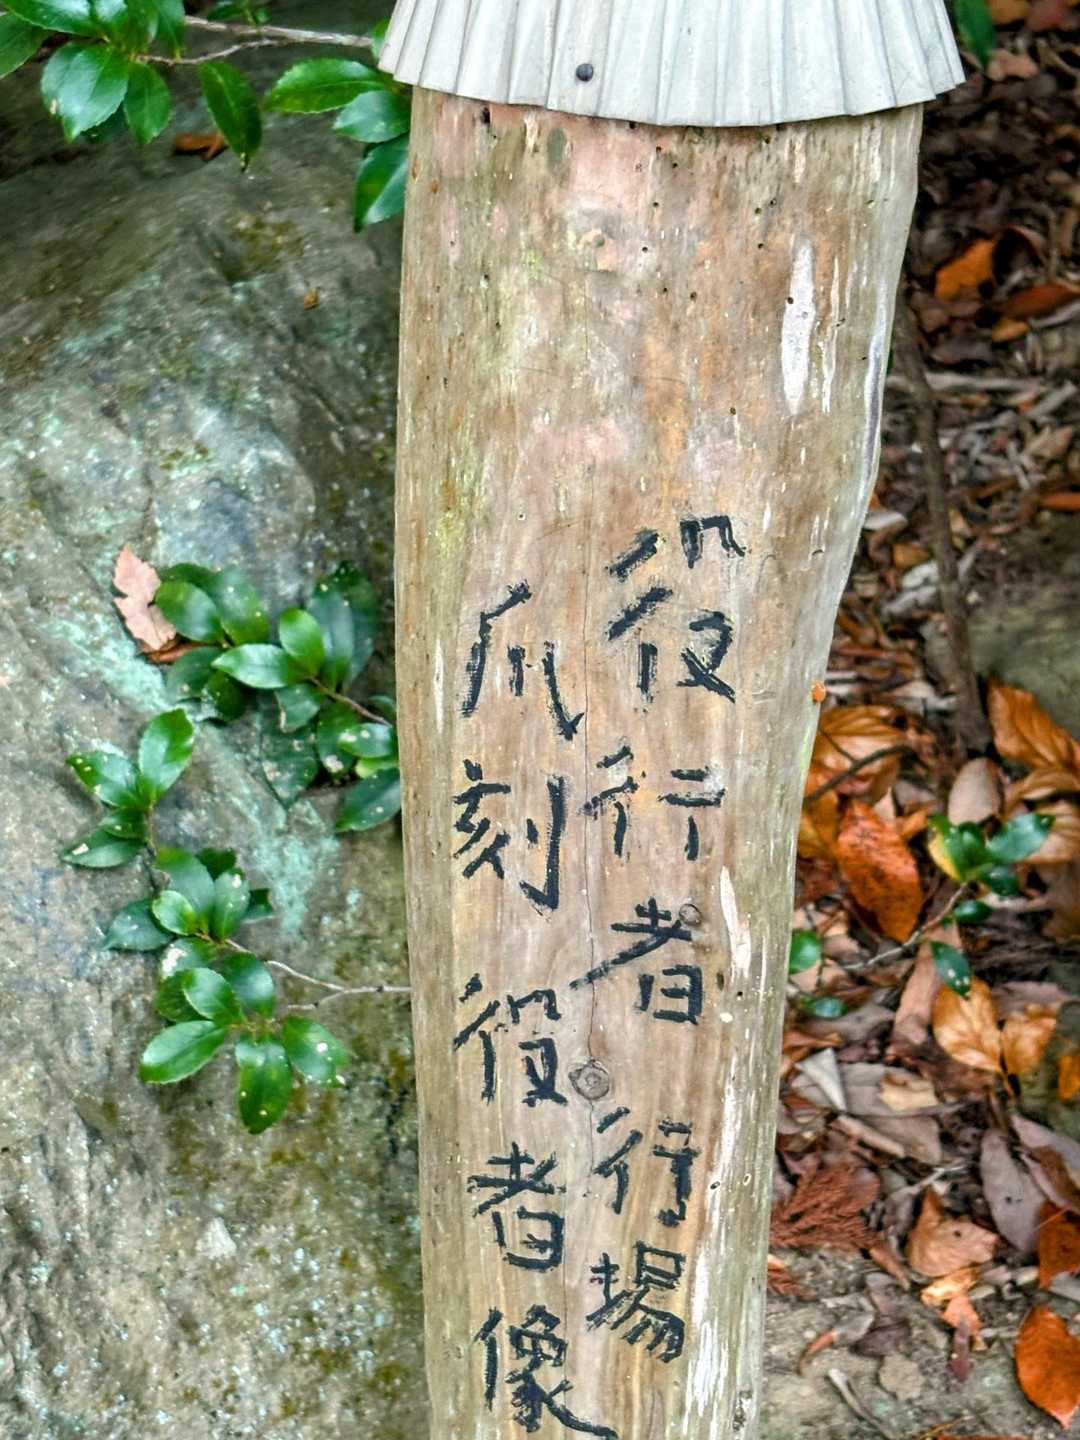 役行者行場
爪刻役者像